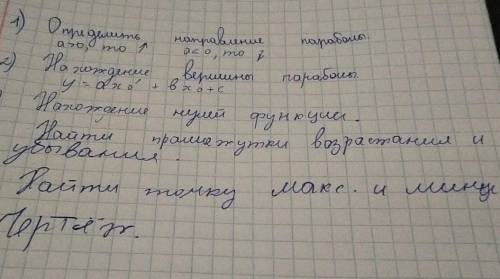 1) Определить направление параболы.
а>0, то ↑ а<0, то ↓
2) Нахождение вершины параболы.
y = ax₀² + вx₀+c
Нахождение нулей функции.
Найти промежутки возрастания и
убывания.
Найти точку макс. и мин
Чертёж.